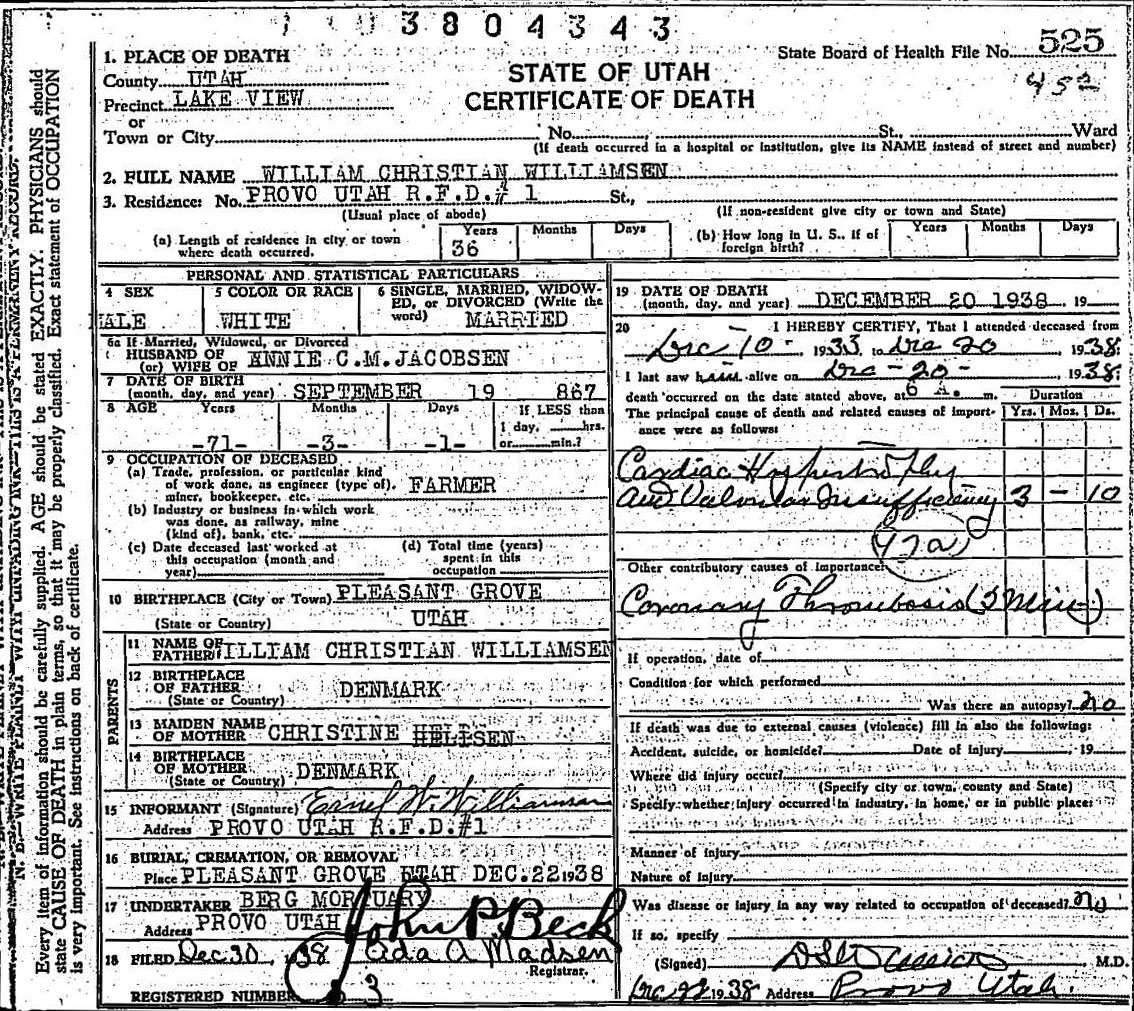 3804343
State Board of Health File No. 525
452
1. PLACE OF DEATH
County UTAH
Precinct LAKE VIEW
or
Town or City
STATE OF UTAH
CERTIFICATE OF DEATH
No. St., Ward
(If death occurred in a hospital or institution, give its NAME instead of street and number)
2. FULL NAME WILLIAM CHRISTIAN WILLIAMSEN
3. Residence: No. PROVO UTAH R.F.D.# 1 St.,
(Usual place of abode) (If non-resident give city or town and State)
(a) Length of residence in city or town where death occurred. Years 36 Months Days
(b) How long in U. S., if of foreign birth? Years Months Days
PERSONAL AND STATISTICAL PARTICULARS
4 SEX MALE
5 COLOR OR RACE WHITE
6 SINGLE, MARRIED, WIDOWED, or DIVORCED (Write the word) MARRIED
6a If Married, Widowed, or Divorced
HUSBAND OF
(or) WIFE OF ANNIE C.M.JACOBSEN
7 DATE OF BIRTH
(month, day, and year) SEPTEMBER 19 867
8 AGE Years Months Days If LESS than
-71- -3- -1- 1 day, hrs.
or min.?
9 OCCUPATION OF DECEASED
(a) Trade, profession, or particular kind
of work done, as engineer (type of),
miner, bookkeeper, etc. FARMER
(b) Industry or business in which work
was done, as railway, mine
(kind of), bank, etc.
(c) Date deceased last worked at
this occupation (month and
year)
(d) Total time (years)
spent in this
occupation
10 BIRTHPLACE (City or Town) PLEASANT GROVE
(State or Country) UTAH
PARENTS
11 NAME OF
FATHER WILLIAM CHRISTIAN WILLIAMSEN
12 BIRTHPLACE
OF FATHER DENMARK
(State or Country)
13 MAIDEN NAME
OF MOTHER CHRISTINE
14 BIRTHPLACE
OF MOTHER DENMARK
(State or Country)
15 INFORMANT (Signature) W. Williamsen
Address PROVO UTAH R.F.D.#1
16 BURIAL, CREMATION, OR REMOVAL
Place PLEASANT GROVE UTAH DEC.22 1938
17 UNDERTAKER BERG MORTUARY
Address PROVO UTAH
John P. Beck
18 FILED Dec 30, 38 Ada A Madsen
Registrar.
REGISTERED NUMBER 3
19 DATE OF DEATH
(month, day, and year) DECEMBER 20 1938 19
20 I HEREBY CERTIFY, That I attended deceased from
Dec-10- 1933 to Dec 20 1938
I last saw him alive on Dec-20- 1938
death occurred on the date stated above, at 6 A. m.
The principal cause of death and related causes of importance were as follows:
Duration
Yrs. Mos. Ds.
Cardiac Hypertrophy
and Valvular Insufficiency 3 - 10
Other contributory causes of importance:
Coronary Thrombosis (5 Min)
If operation, date of
Condition for which performed
Was there an autopsy? no
If death was due to external causes (violence) fill in also the following:
Accident, suicide, or homicide? Date of Injury 19
Where did injury occur?
(Specify city or town, county and State)
Specify whether injury occurred in industry, in home, or in public place:
Manner of Injury
Nature of Injury
Was disease or injury in any way related to occupation of deceased? no
If so, specify
(Signed) M.D.
Dec 22 1938 Address Provo Utah.
Every item of information should be carefully supplied. AGE should be stated EXACTLY. PHYSICIANS should
state CAUSE OF DEATH in plain terms, so that it may be properly classified. Exact statement of OCCUPATION
is very important. See instructions on back of certificate.